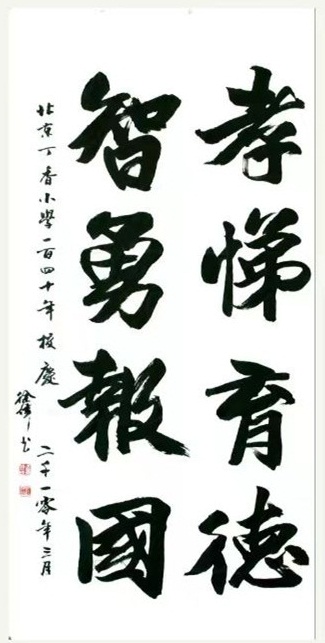 孝悌育德
智勇報國
北京丁香小學一百四十年校慶
二千一零年三月